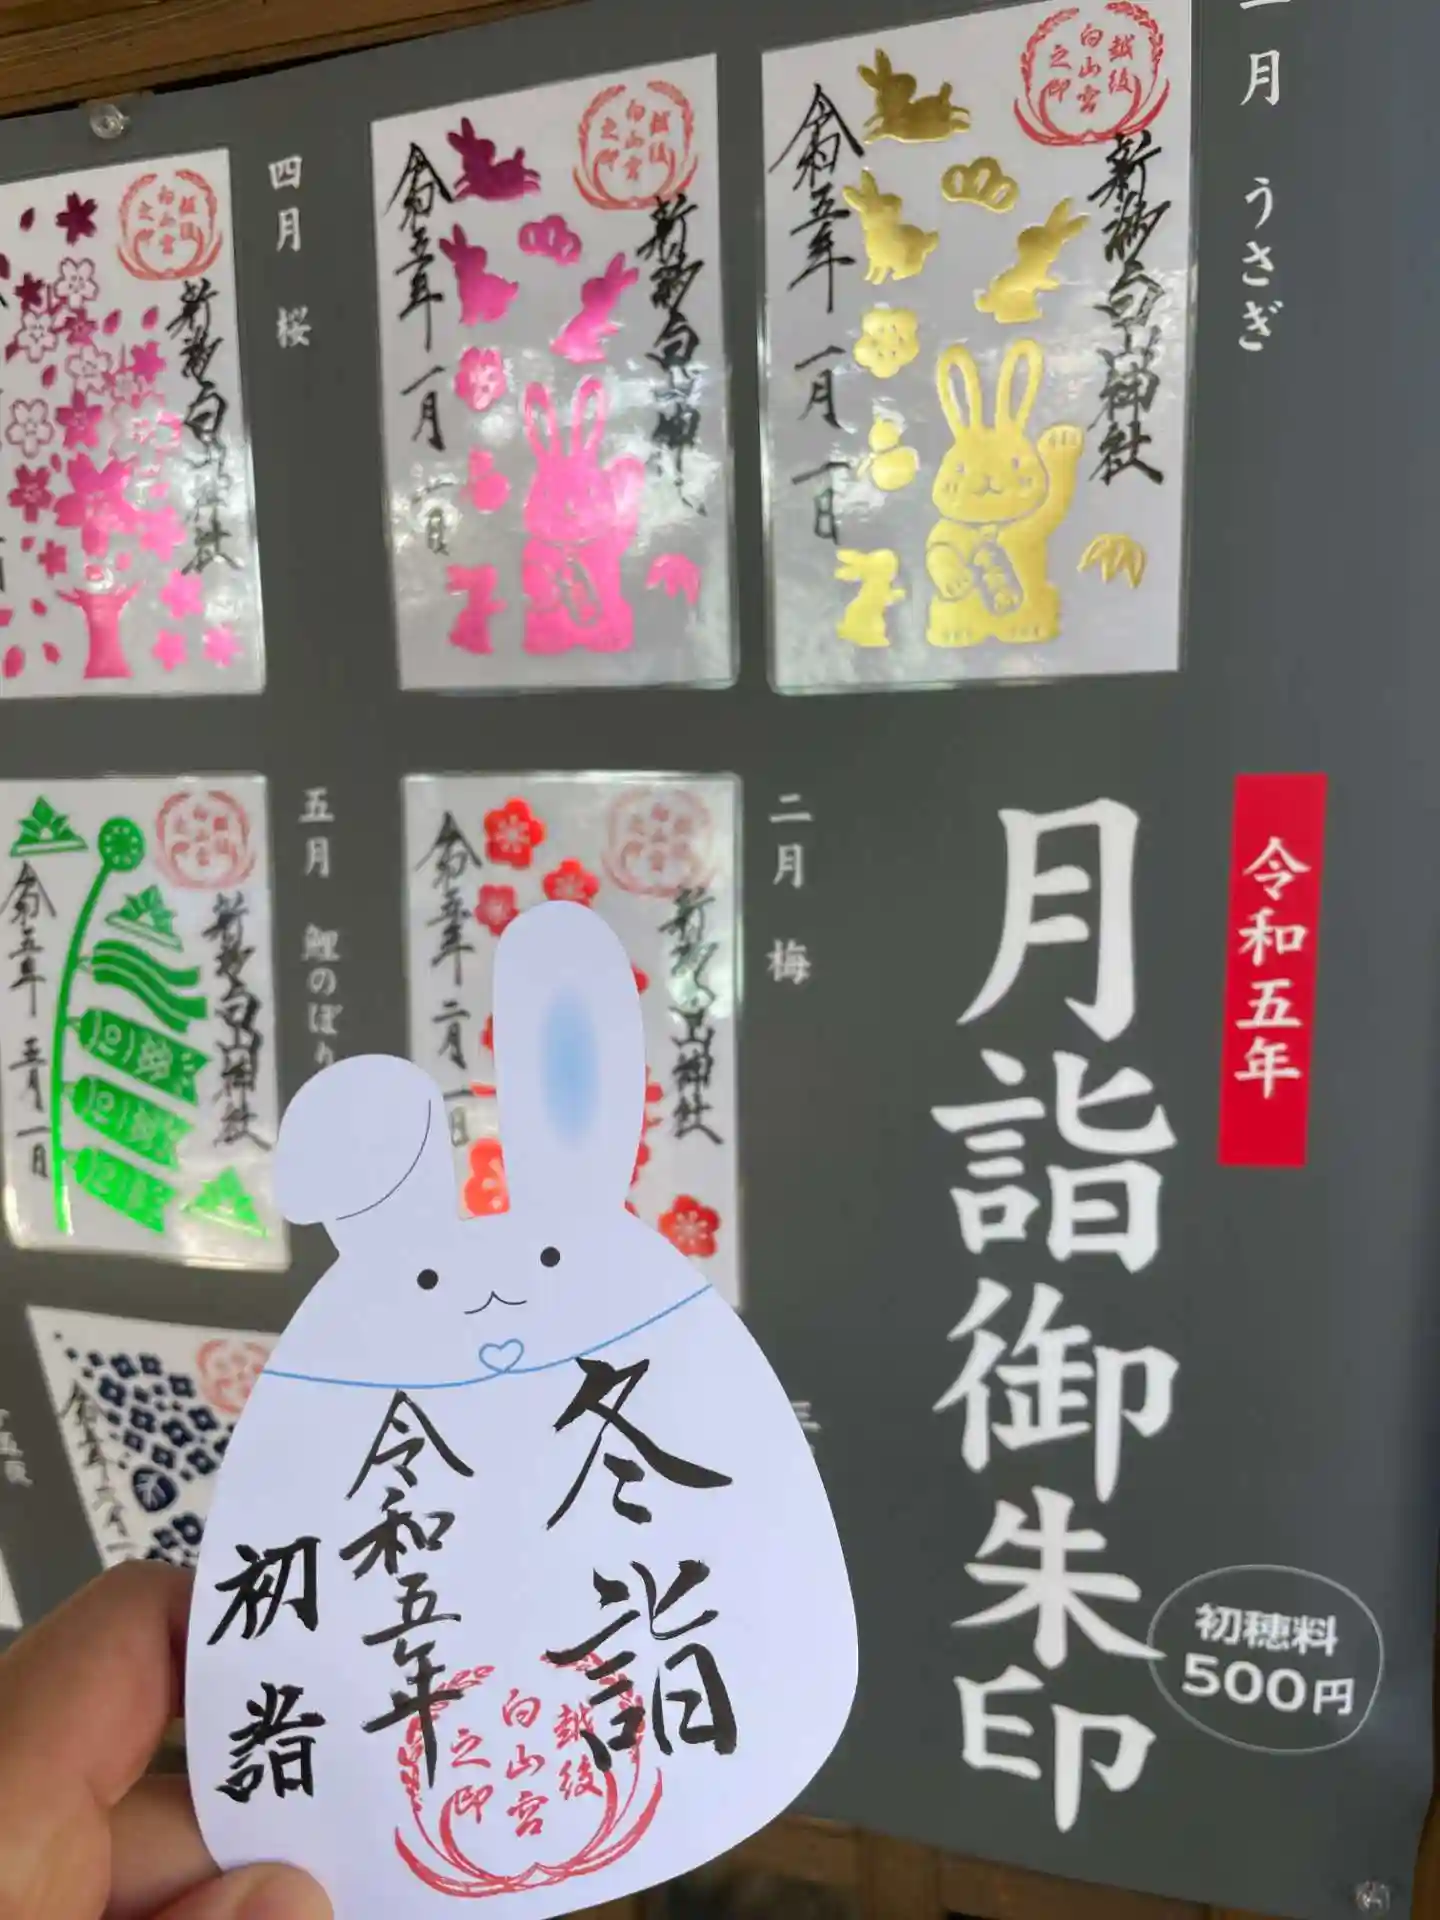 一月 うさぎ
越後
白山宮
之印
新潟白山神社
令和五年 一月 一日
越後
白山宮
之印
新潟白山神社
令和五年 一月 一日
四月 桜
越後
白山宮
之印
新潟白山神社
令和五年
月詣御朱印
初穂料
500円
二月 梅
新潟白山神社
令和五年 二月 一日
五月 鯉のぼり
新潟白山神社
令和五年 五月 一日
冬詣
令和五年
初詣
越後
白山宮
之印